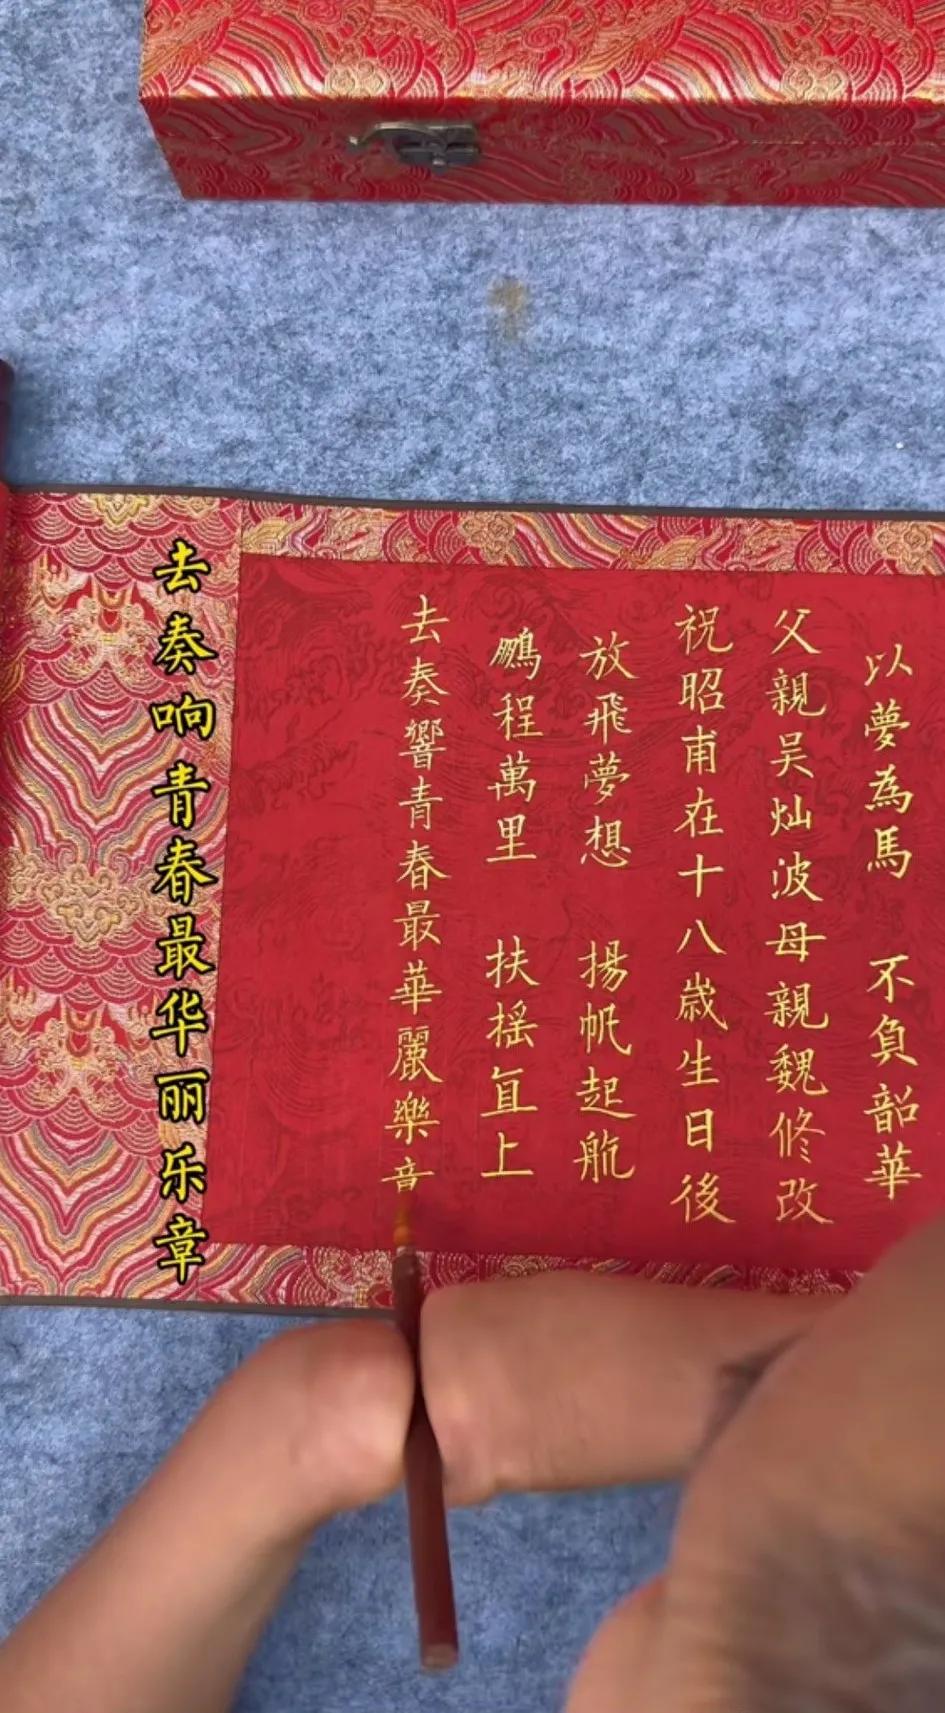 以夢為馬 不負韶華
父親吴灿波母親魏修改
祝昭甫在十八歲生日後
放飛夢想 揚帆起航
鵬程萬里 扶摇直上
去奏響青春最華麗樂音
去奏响青春最华丽乐章